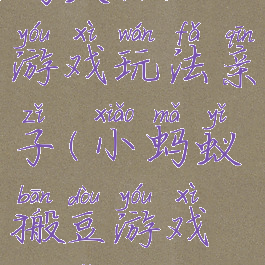 yóu xì wán fǎ qīn
游戏玩法亲
zǐ xiǎo mǎ yǐ
子(小蚂蚁
bān dòu yóu xì
搬豆游戏